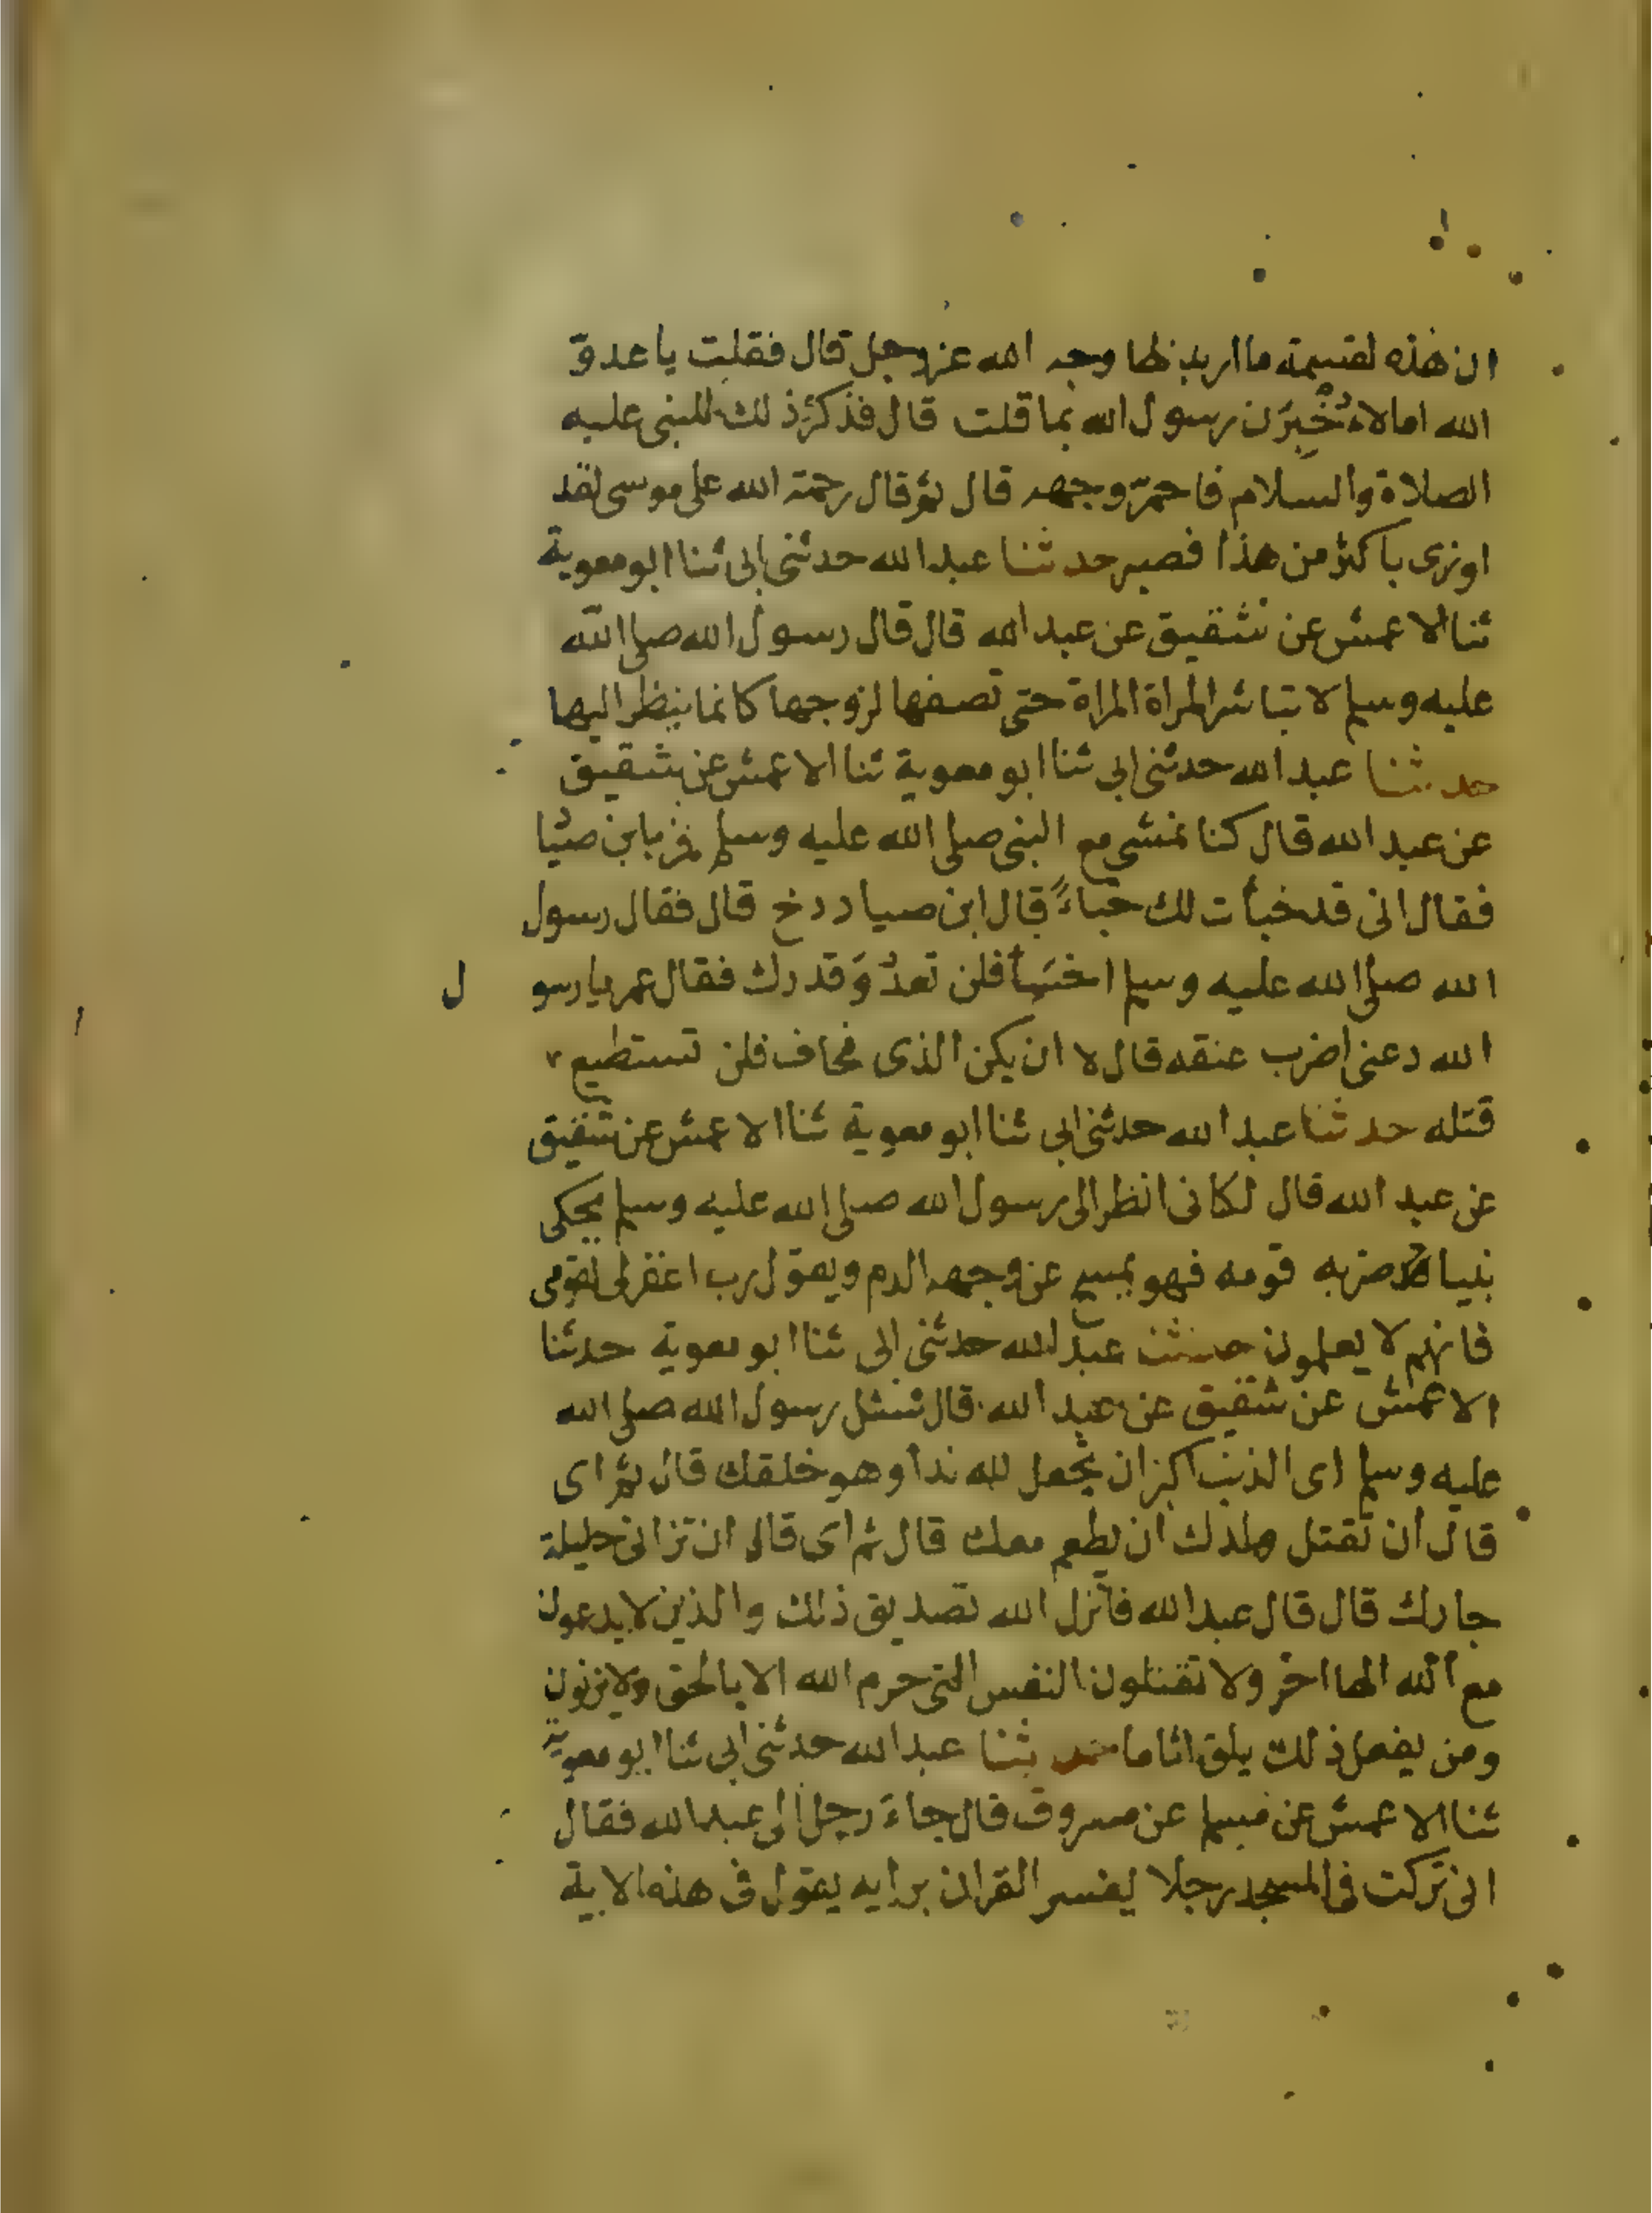 ان هذه لقسمة ما اريد بها وجه الله عز وجل قال فقلت يا عدوّ
الله اما لاءُخْبِرَن رسول الله بما قلت قال فذكرذ لك للنبى عليه
الصلاة والسلام فاحمرّ وجهه قال ثم قال رحمة الله على موسى لقد
اوذى باكثر من هذا فصبر حدثنا عبد الله حدثنى ابى ثنا ابو معوية
ثنا الاعمش عن شقيق عن عبد الله قال قال رسول الله صلى الله
عليه وسلم لا تباشر المراة المراة حتى تصفها لزوجها كانما ينظر اليها
حدثنا عبد الله حدثنى ابى ثنا ابو معوية ثنا الاعمش عن شقيق
عن عبد الله قال كنا نمشى مع النبى صلى الله عليه وسلم فمر بابن صيا
فقال انى قد خبأت لك خباءً قال ابن صياد دخ قال فقال رسول
الله صلى الله عليه وسلم اخسَأ فلن تعدُوَ قدرك فقال عمر يا رسو ل
الله دعنى اضرب عنقه قال لا ان يكن الذى نخاف فلن تستطيع
قتله حدثنا عبد الله حدثنى ابى ثنا ابو معوية ثنا الاعمش عن شقيق
عن عبد الله قال لكانى انظر الى رسول الله صلى الله عليه وسلم يحكى
نبيا ضربه قومه فهو يمسح عن وجهه الدم ويقول رب اغفر لى لقومى
فانهم لا يعلمون حدثنا عبد الله حدثنى ابى ثنا ابو معوية حدثنا
الاعمش عن شقيق عن عبد الله قال سئل رسول الله صلى الله
عليه وسلم اى الذنب اكبر ان تجعل لله ندا وهو خلقك قال ثم اى
قال ان تقتل ولدك ان يطعم معك قال ثم اى قال ان تزانى حليلة
جارك قال قال عبد الله فانزل الله تصديق ذلك والذين لا يدعون
مع الله الها اخر ولا تقتلون النفس التى حرم الله الا بالحق ولا يزنون
ومن يفعل ذلك يلق اثاما حدثنا عبد الله حدثنى ابى ثنا ابو معوية
ثنا الاعمش عن مسلم عن مسروق قال جاءَ رجل الى عبد الله فقال
انى تركت فى المسجد رجلا يفسر القران برايه يقول فى هذه الاية